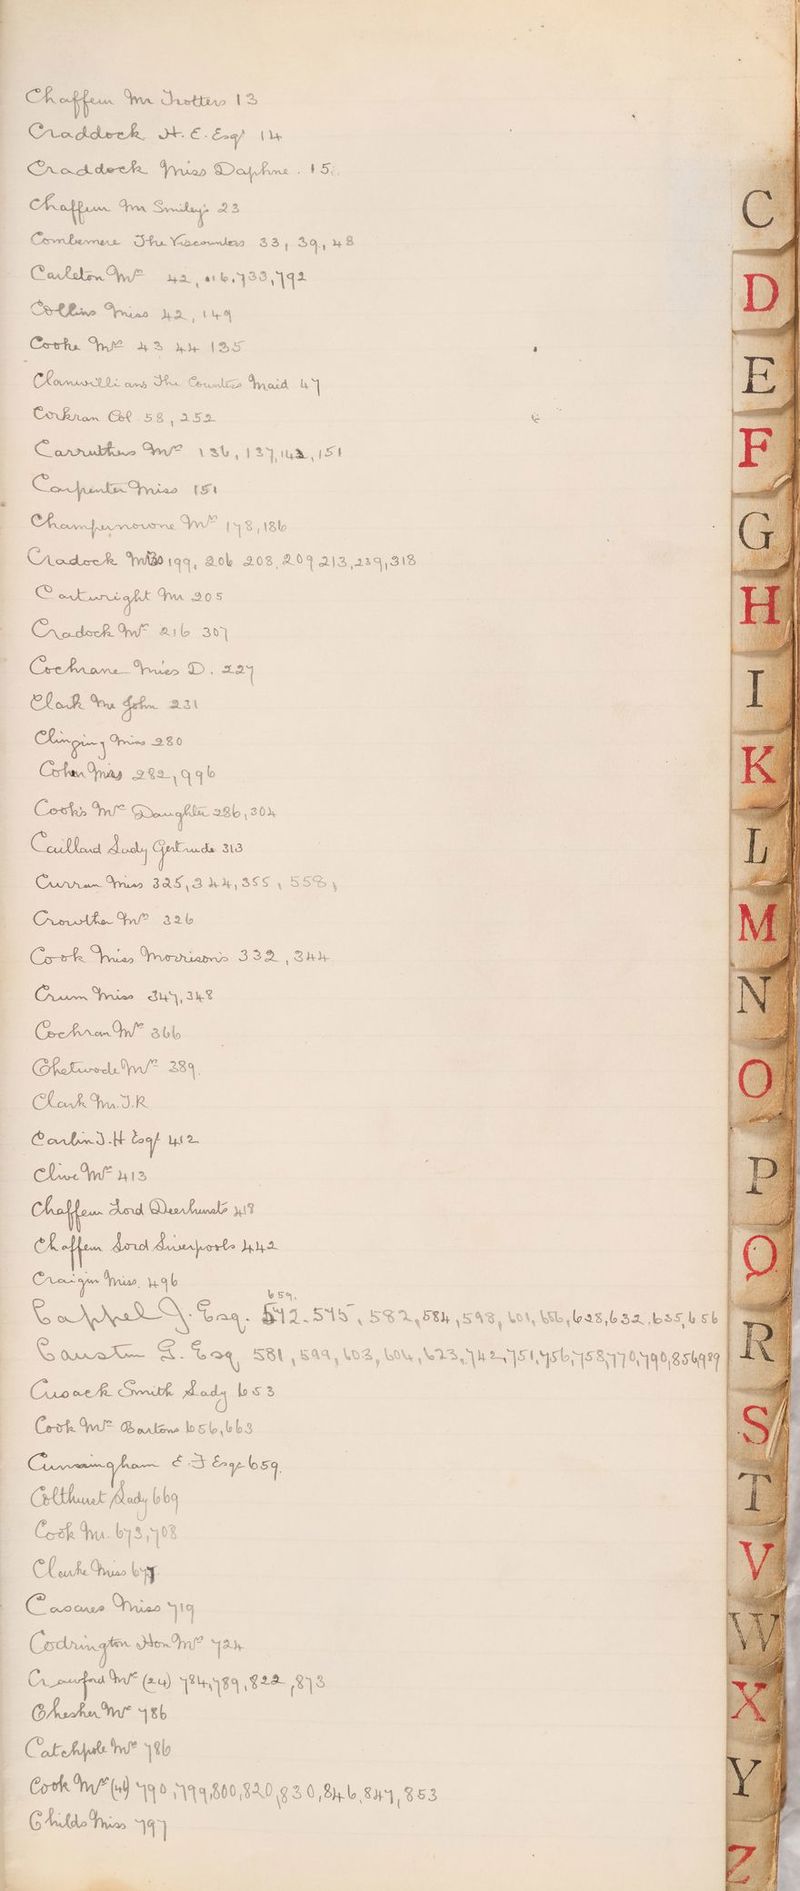 Chaffeur Mr Trotters 13
Craddock H. E. Esqr 14
Craddock Miss Daphne. 15.
Chaffeur Mr Smiley's 23
Combermere The Viscountess 33, 39, 48
Carleton Mrs 42, 733, 792
Collins Miss 42, 149
Cooke Mrs 43 44 135
Clanwilliams The Countess Maid 47
Corkran Col 58, 252
Carruthers Mrs 136, 137, 142, 151
Carpenter Miss 151
Champernowne Mrs 178, 186
Cradock Miss 199, 206 208, 209 213, 239, 318
Cartwright Mr 205
Cradock Mrs 216 307
Cochrane Miss D. 227
Clark Mr John 231
Clinging Miss 280
Cohen Miss 282, 996
Cook's Mrs Daughter 286, 304
Caillard Lady Gertrude 313
Curran Miss 325, 344, 355, 558,
Crowther Mrs 326
Cook Miss Morrison's 332, 344
Crum Miss 347, 348
Cochran Mrs 366
Chetwode Mrs 389.
Clark Mr. J.R
Carlin J.H Esqr 412
Clive Mrs 413
Chaffeur Lord Deerhursts 418
Chaffeur Lord Liverpools 442
Craigin Miss. 496
659.
Cappel J. Esq. 572. 575, 582, 584, 598, 601, 606, 628, 632, 635, 656
Causton G. Esq. 581, 599, 603, 604, 623, 742, 751, 756, 758, 770, 790, 856, 989
Cusack Smith Lady 653
Cook Mrs Bartons 656, 663
Cunningham E. F Esqr 659.
Colthurst Lady 669
Cook Mr. 673, 708
Clarke Miss 677
Casares Miss 719
Codrington Hon Mrs 724
Crawford Mrs (24) 784, 789, 822, 873
Chesher Mrs 786
Catchpole Mrs 786
Cook Mrs (44) 790, 799, 800, 820, 830, 846, 847, 853
Childs Miss 797
C
D
E
F
G
H
I
K
L
M
N
O
P
Q
R
S
T
V
W
X
Y
Z